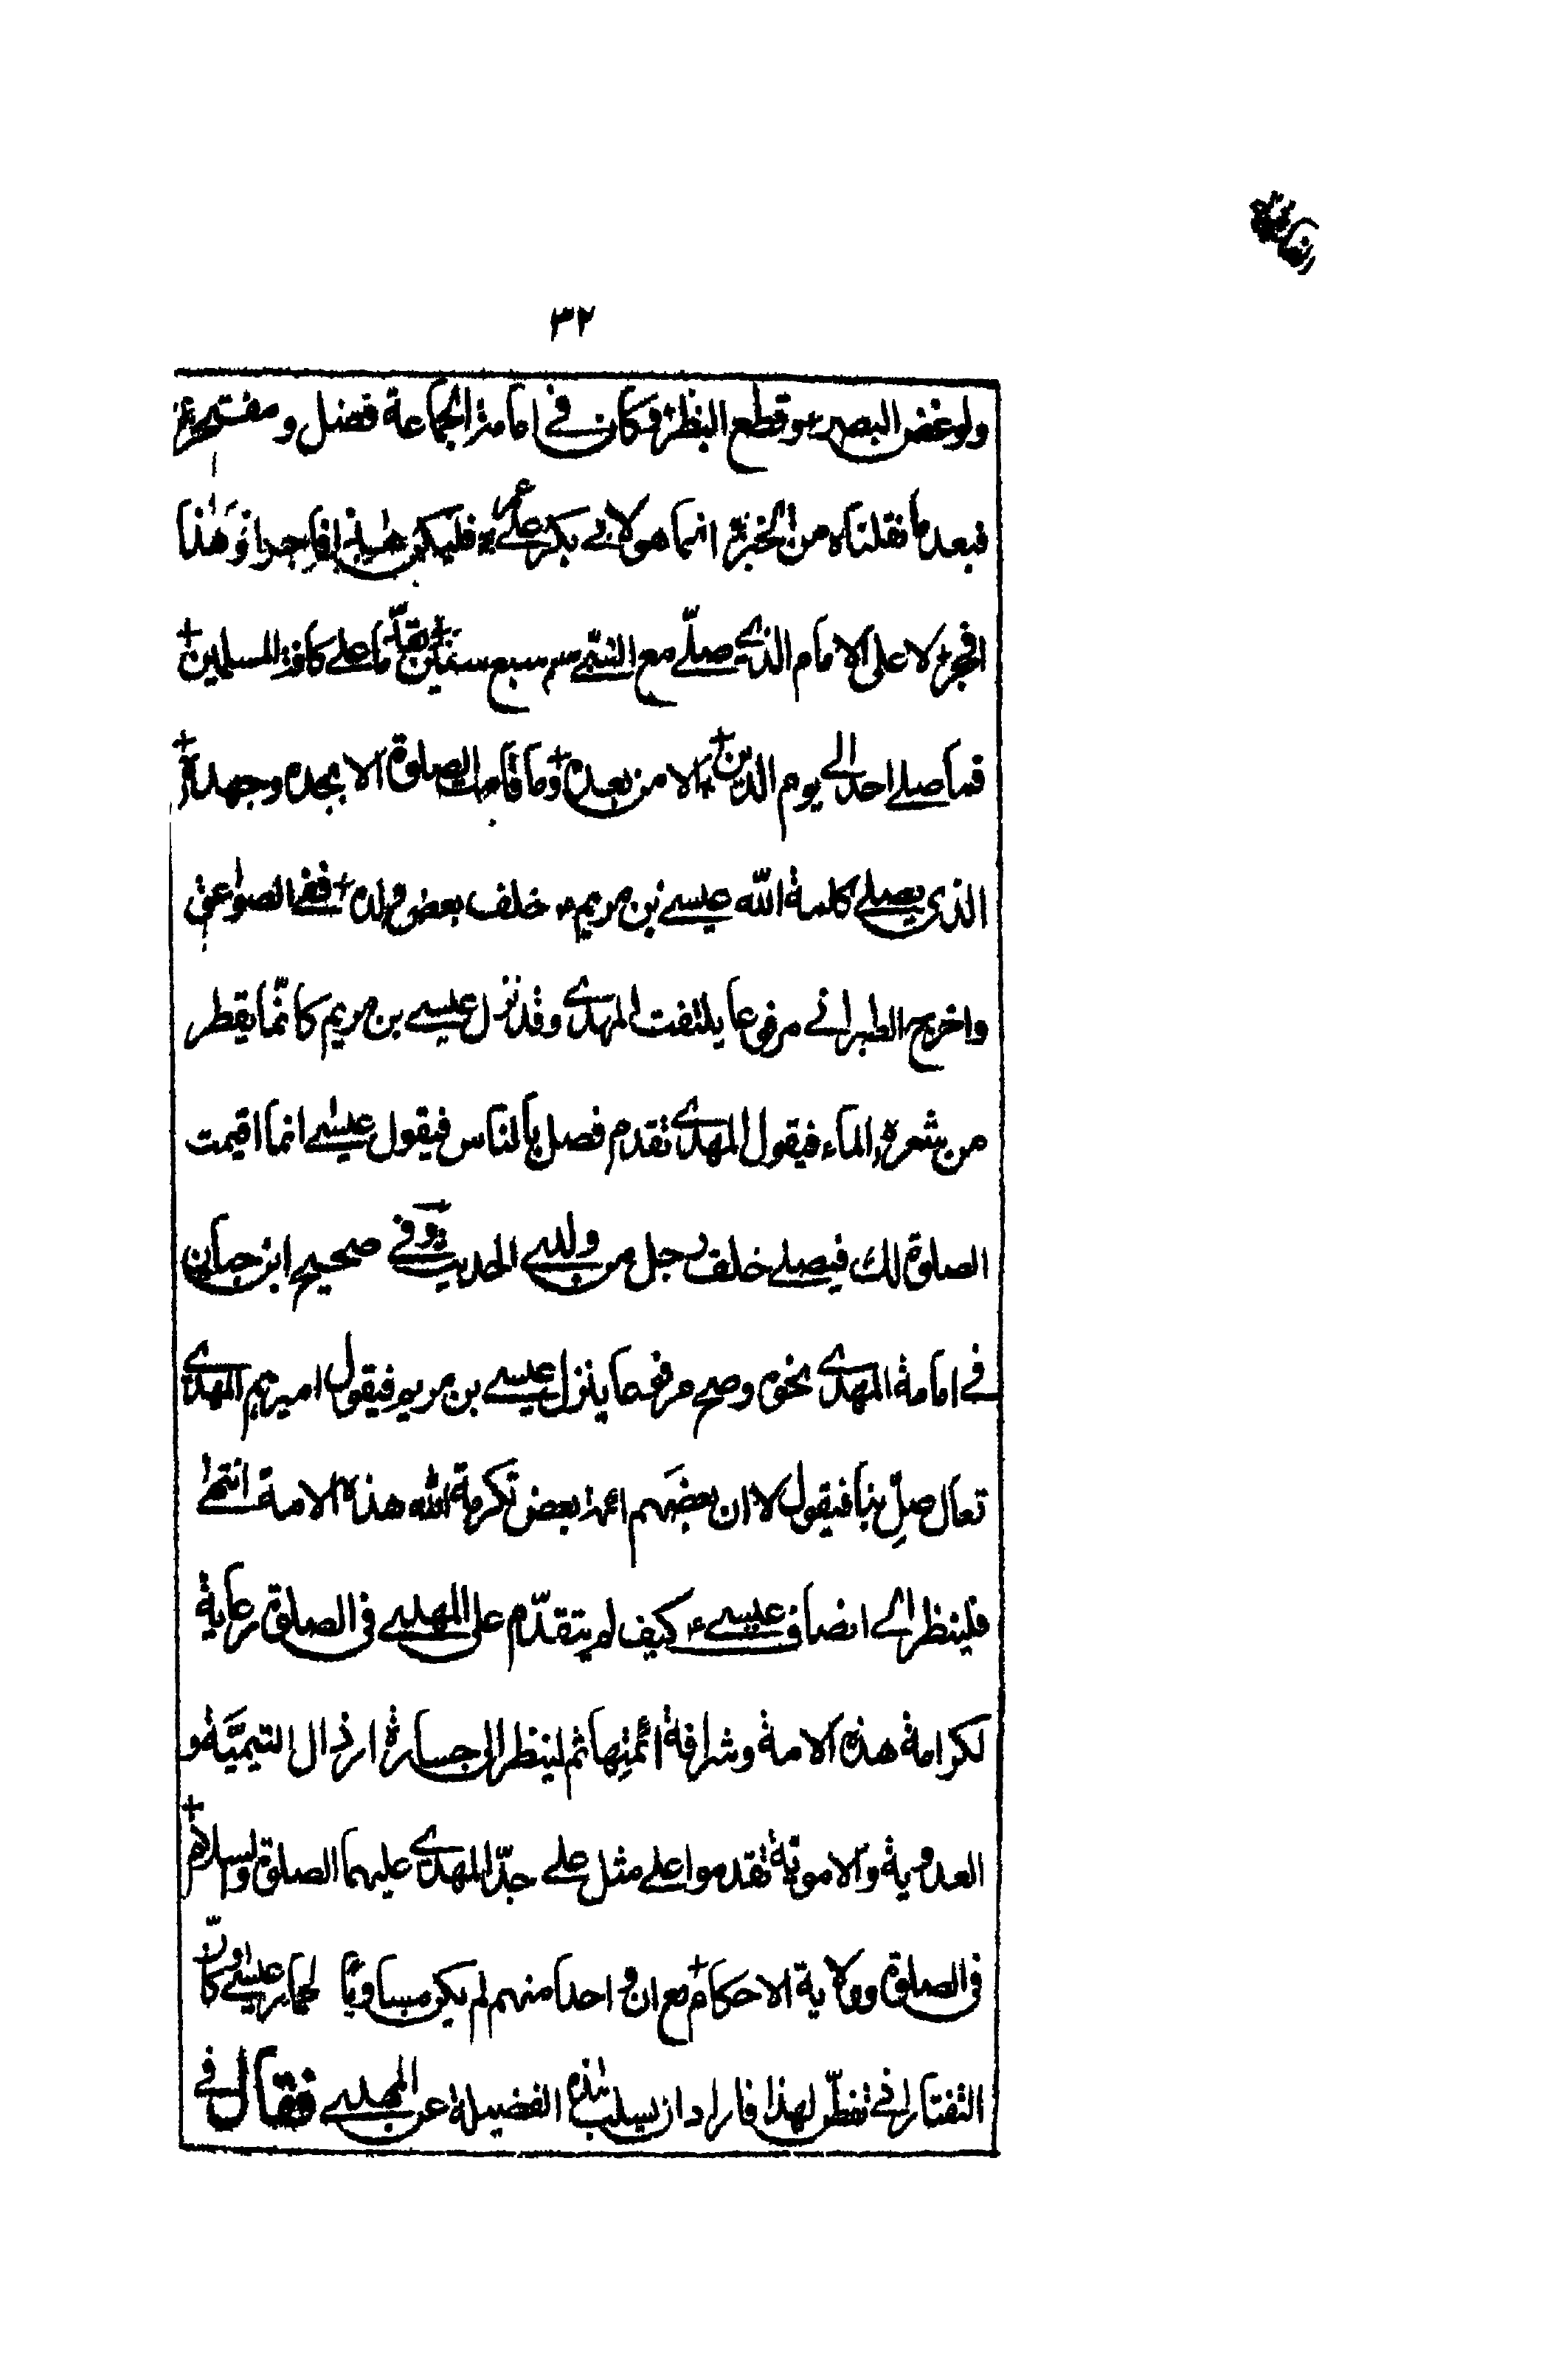 ٣٢
ولو غض البصر + وقطع النظر + فكان في امامة الجماعة فضل و مفتخر
فبعد ما نقلناه من الخبر انما هو لابي بكر عمر على فليكن هذا فاجرا وهذا
افجر لا على الامام الذي صلّے مع النبي ص سبع سنين + تقدّما على كافة المسلمين +
فما صلے احد الے يوم الدين + الا من بعده + وما قامت الصلوة الا بجده وجهده +
الذى يصلے كلمة الله عيسے بن مريم خلف بعض ولده + ففے الصواعق
واخرج الطبرانے مرفوعا يلتفت المهدے وقد نزل عيسے بن مريم كانّما يقطر
من شعره الماء فيقول المهدے تقدم فصل بالناس فيقول عيسے انما اقيمت
الصلوة لك فيصلے خلف رجل من ولدے الحديث وفے صحيح ابن حبان
فے امامة المهدے نحوه وصح مرفوعا ينزل عيسے بن مريم فيقول اميرهم المهدے
تعال صلِّ بنا فيقول لا ان بعضهم ائمة بعض تكرمة الله هذه الامة انتهے
فلينظر الے انصاف عيسے ع كيف لم يتقدّم على المهدے فى الصلوة رعاية
لكرامة هذه الامة وشرافة ائمتها ثم لينظر الى جسارة ارذال التيميّة و
العدوية والاموية تقدموا علے مثل علے جدّ المهدے عليهما الصلوة والسلام +
فى الصلوة وولاية الاحكام + مع ان واحدا منهم لم يكن مساويًا لحمار عيسے وكانّ
التفتازانے تفطّن لهذا فاراد ان يسلب هذه الفضيلة عن المهدے فقال فے